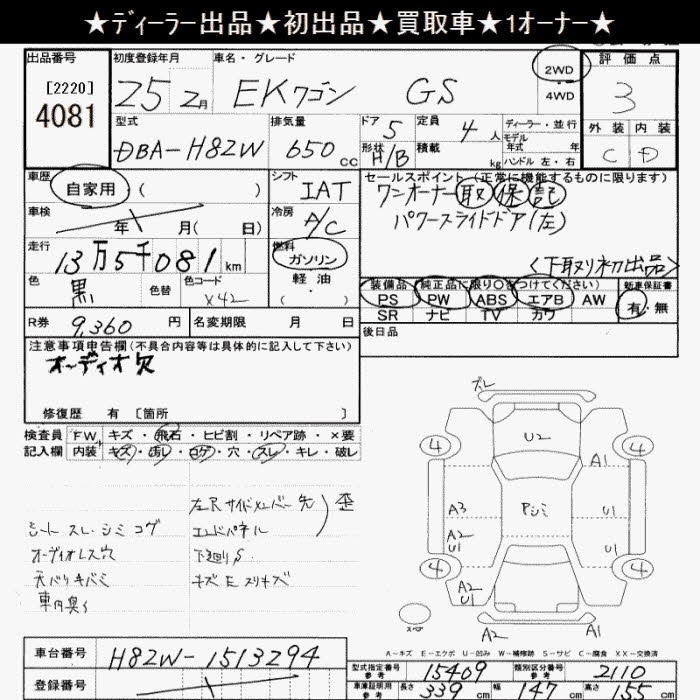 ★ディーラー出品★初出品★買取車★1オーナー★
出品番号
[2220]
4081
初度登録年月
25 2月
車名・グレード
EKワゴン GS
2WD
4WD
評価点
3
外装 内装
C D
型式
DBA-H82W
排気量
650 cc
ドア 5
形状 H/B
定員 4 人
積載 kg
ディーラー・並行
モデル
年式 年
ハンドル 左・右
車歴
自家用 ( )
車検
年 月( 日)
走行
13万5千081 km
色
黒
色替
色コード
X42
シフト
IAT
冷房
A/C
燃料
ガソリン
軽油
( ・ )
R券
9,360 円
名変期限 月 日
セールスポイント(正常に機能するものに限ります)
ワンオーナー 取 保 記
パワースライドドア(左)
<下取り初出品>
装備品(純正品に限り○をつけてください)
PS PW ABS エアB AW
SR ナビ TV カワ
新車保証書
有・無
後日品
注意事項申告欄(不具合内容等は具体的に記入して下さい)
オーディオ欠
修復歴 有 [箇所 ]
検査員
記入欄
FW キズ・飛石・ヒビ割・リペア跡・×要
内装 キズ・汚レ・コゲ・穴・スレ・キレ・破レ
左右サイドメンバー先 歪
エンドパネル
下廻りS
キズEスリキズ
シート スレ シミ コゲ
オーディオレス穴
天バリキバミ
車内臭イ
ズレ
4 U2 4
A1
A3 Pシミ U1
A2
U1 U1
4 4
A2
U1 A1
スペア
A2 A1
A-キズ E-エクボ U-凹み W-補修跡 S-サビ C-腐食 XX-交換済
車台番号
H82W-1513294
登録番号
型式指定番号
参考
15409
類別区分番号
参考
2110
車庫証明用
参考
長さ 339 cm 幅 147 cm 高さ 155 cm